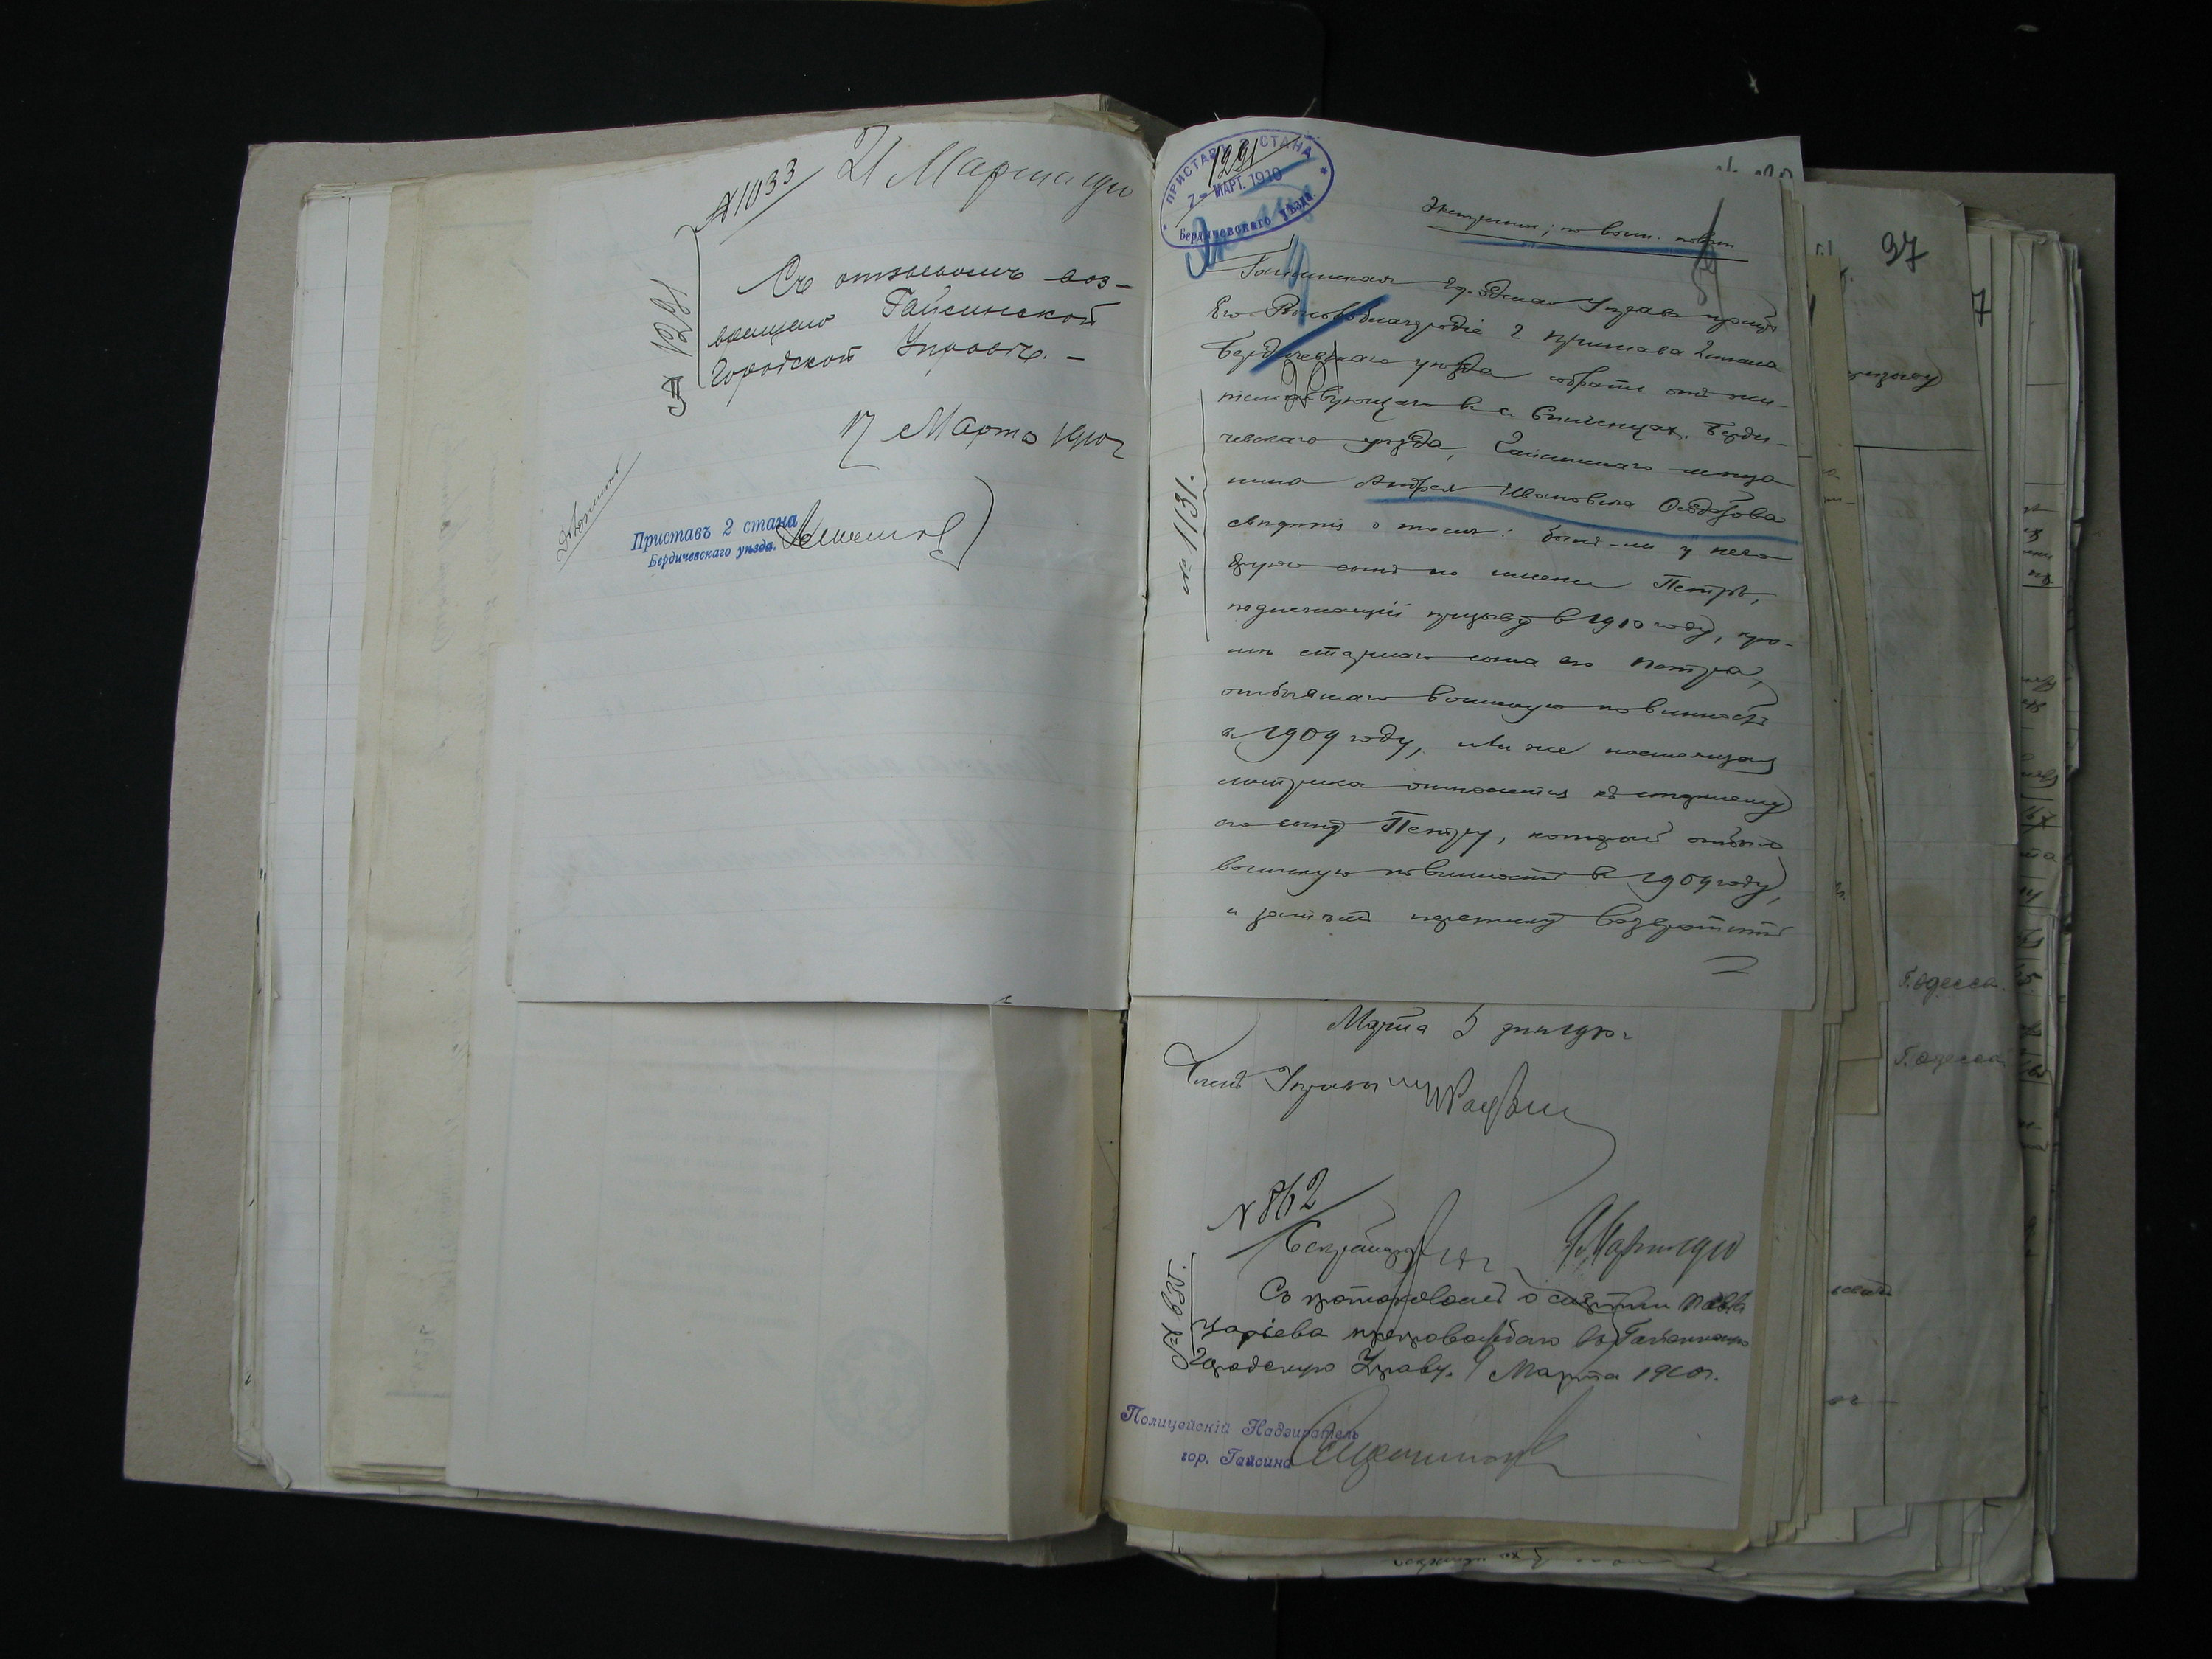 № 1033
21 Марта 1910
№ 1221
Съ отзывомъ воз-
вращено Гайсинской
Городской Управѣ. –
17 Марта 1910 г
Приставъ 2 стана
Бердичевскаго уѣзда.
ПРИСТАВЪ 2 СТАНА
1221
7 - МАРТ. 1910
Бердичевскаго уѣзда.
37
по воин. повин
Гайсинская Город. Управа проситъ
Его Высокоблагородіе г Пристава 2 стана
Бердичевскаго уѣзда собрать отъ жи-
тельствующаго в с. Берди-
чевскаго уѣзда, Гайсинскаго мѣща
нина Андрея Ивановича
№ 1131.
свѣдѣнія о томъ: былъ-ли у него
другой сынъ по имени Петръ,
подлежащій призыву в 1910 году, кро-
мѣ старшаго сына его Петра,
отбывшаго воинскую повинность
в 1909 году, или же настоящая
метрика относится къ старшему
его сыну Петру, который отбылъ
воинскую повинность в 1909 году,
и затѣмъ переписку возвратить
Марта 5 дня 1910 г
Членъ Управы
№ 862
Секретарь
9 Марта 1910
№ 635.
Съ протоколомъ о
препровождаю въ Гайсинскую
Городскую Управу. 9 Марта 1910 г.
Полицейскій Надзиратель
гор. Гайсина
Г. Одесса.
Г. Одесса